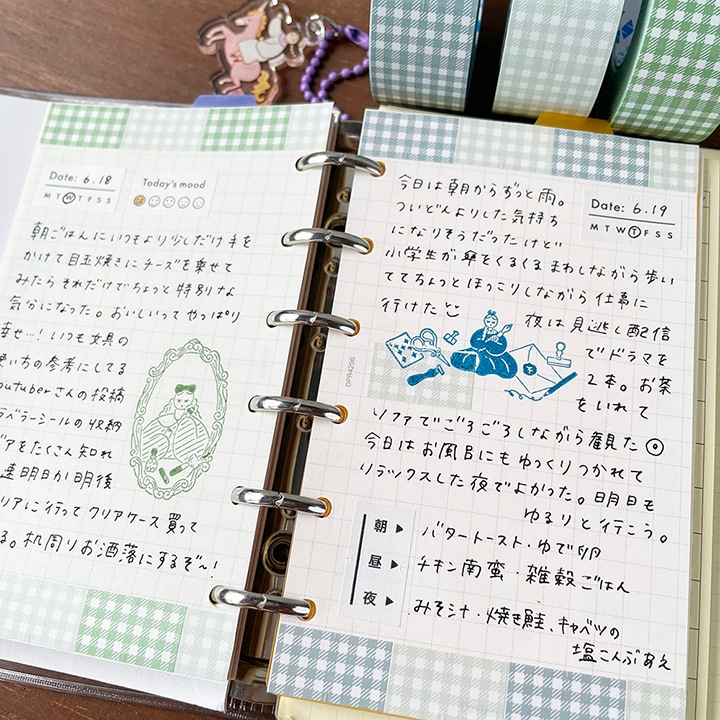 Date: 6.18
M T W T F S S
Today's mood
朝ごはんにいつもより少しだけ手を
かけて目玉焼きにチーズを乗せて
みたらそれだけでちょっと特別な
気分になった。おいしいってやっぱり
幸せ…！いつも文具の
使い方の参考にしてる
outuberさんの投稿
ラベラーシールの収納
デアをたくさん知れ
速明日か明後
リアに行ってクリアケース買って
る。机周りお洒落にするぞ〜！
Date: 6.19
M T W T F S S
今日は朝からずっと雨。
ついどんよりした気持ち
になりそうだったけど
小学生が傘をくるくるまわしながら歩い
ててちょっとほっこりしながら仕事に
行けた
夜は見逃し配信
でドラマを
2本。お茶
をいれて
DPR4296
ソファでごろごろしながら観た
今日はお風呂にもゆっくりつかれて
リラックスした夜でよかった。明日も
ゆるりと行こう。
朝▶ バタートースト・ゆで卵
昼▶ チキン南蛮・雑穀ごはん
夜▶ みそ汁・焼き鮭、キャベツの
塩こんぶあえ